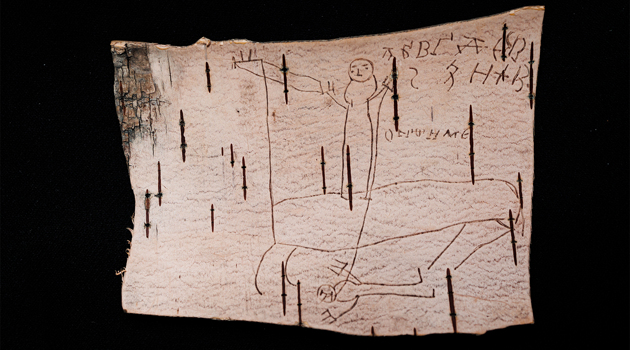 АБВГДЕЖ
ЅЗИІК
ОНѲИМЕ